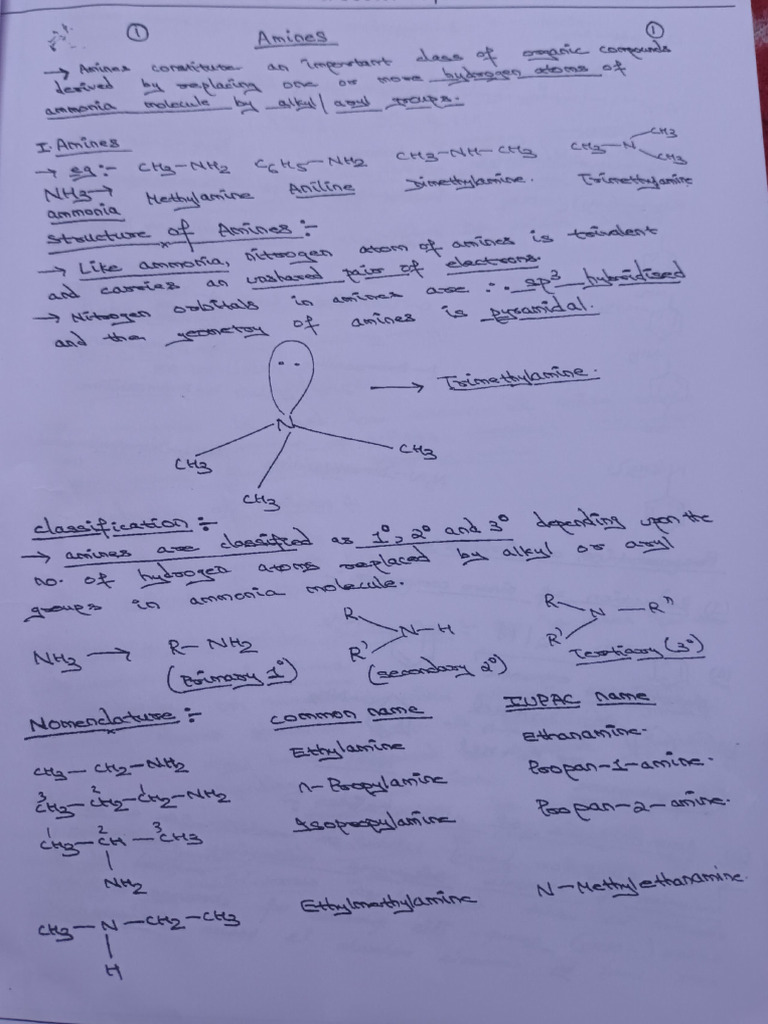 ① Amines ①
→ Amines constitute an important class of organic compounds
derived by replacing one or more hydrogen atoms of
ammonia molecule by alkyl/aryl groups.
I. Amines
→ eg:- CH3-NH2 C6H5-NH2 CH3-NH-CH3 CH3-N CH3 CH3
NH3→ Methylamine Aniline Dimethylamine. Trimethylamine
ammonia
Structure of Amines :-
→ Like ammonia, nitrogen atom of amines is trivalent
and carries an unshared pair of electrons.
→ Nitrogen orbitals in amines are ∴ sp³ hybridised
and the geometry of amines is pyramidal.
→ Trimethylamine.
N
CH3 CH3
CH3
classification :-
→ amines are classified as 1°, 2° and 3° depending upon the
no. of hydrogen atoms replaced by alkyl or aryl
groups in ammonia molecule.
R R
NH3 → R-NH2 N-H N-R"
R' R'
(Primary 1°) (secondary 2°) Tertiary (3°)
Nomenclature :- common name IUPAC name
CH3-CH2-NH2 Ethylamine Ethanamine.
3 2 1
CH3-CH2-CH2-NH2 n-Propylamine Propan-1-amine.
1 2 3
CH3-CH-CH3 Isopropylamine Propan-2-amine.
NH2
CH3-N-CH2-CH3 Ethylmethylamine N-Methylethanamine.
H